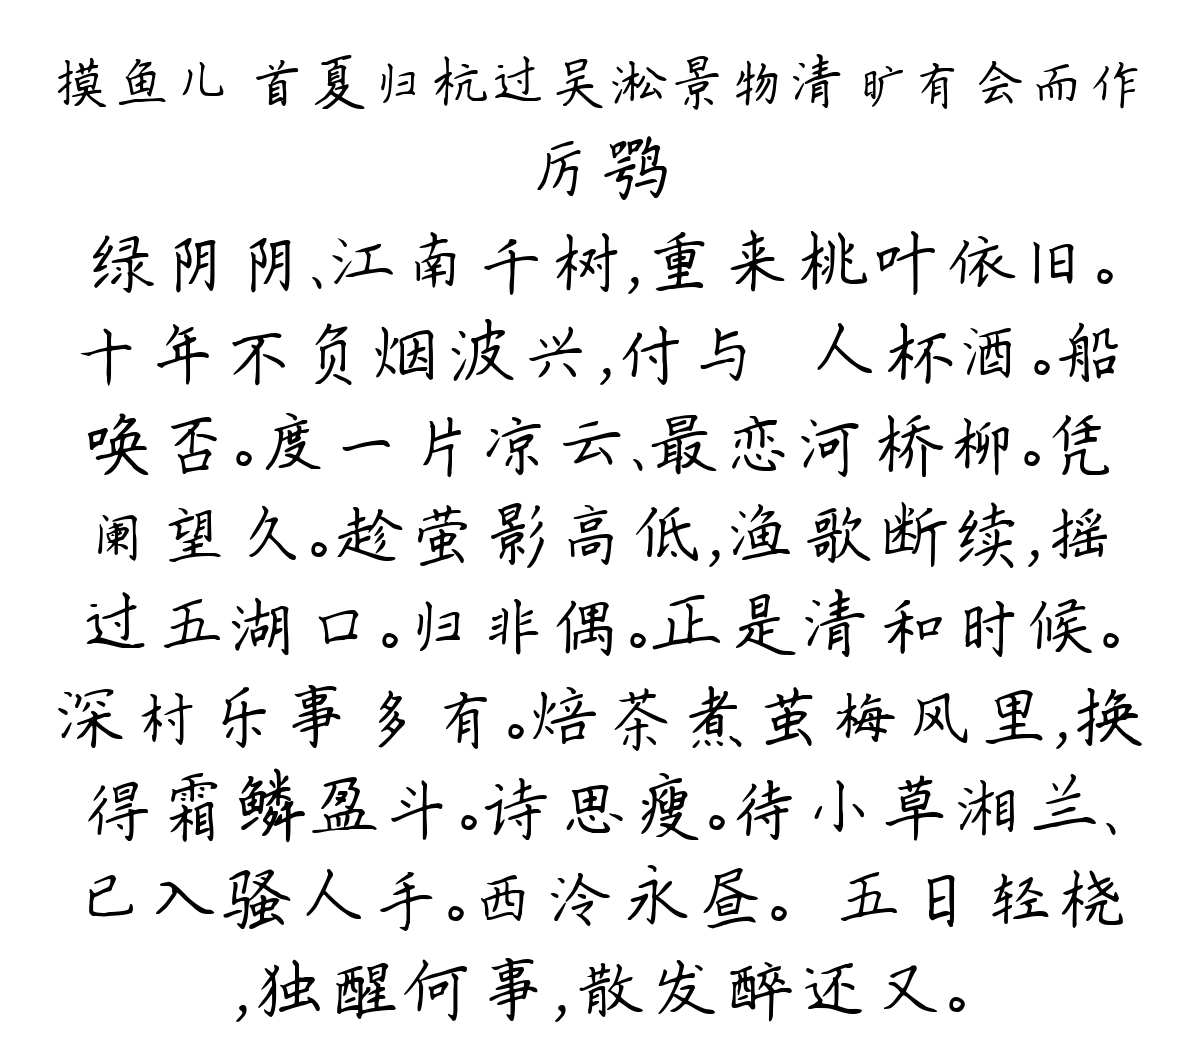 摸鱼儿 首夏归杭过吴淞景物清旷有会而作
厉鹗
绿阴阴、江南千树,重来桃叶依旧。
十年不负烟波兴,付与 人杯酒。船
唤否。度一片凉云、最恋河桥柳。凭
阑望久。趁萤影高低,渔歌断续,摇
过五湖口。归非偶。正是清和时候。
深村乐事多有。焙茶煮茧梅风里,换
得霜鳞盈斗。诗思瘦。待小草湘兰、
已入骚人手。西泠永昼。 五日轻桡
,独醒何事,散发醉还又。